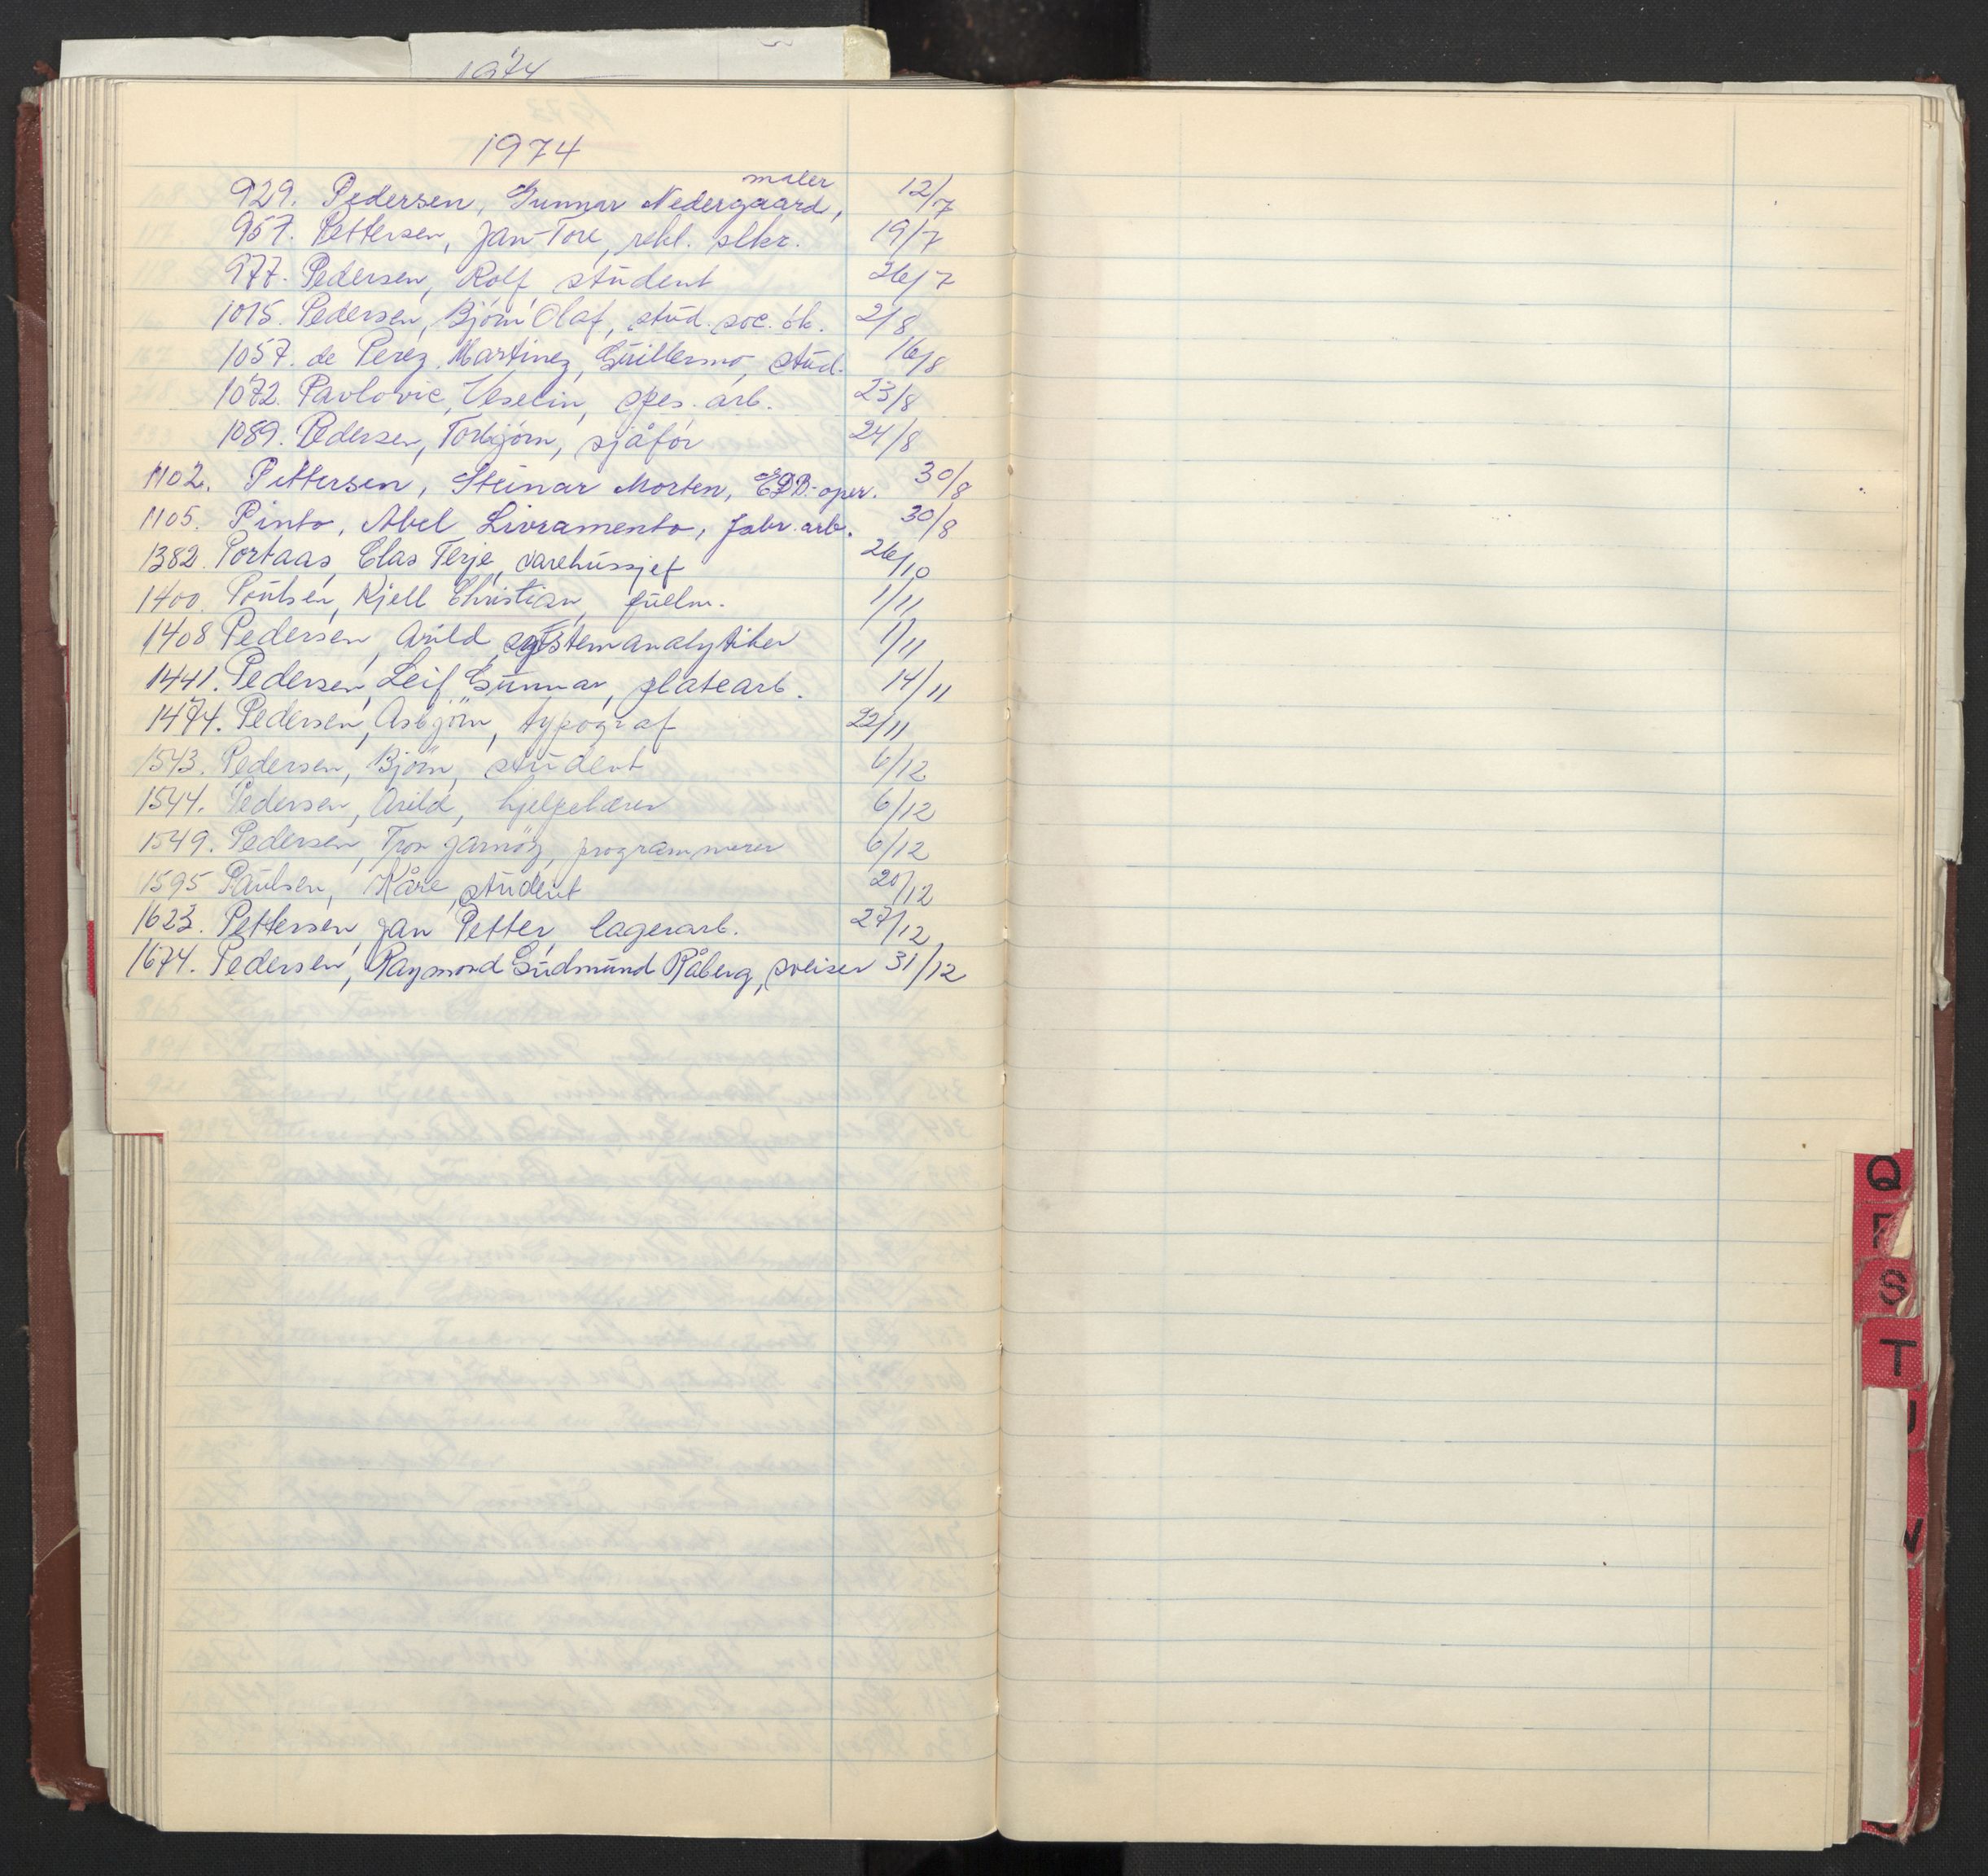 1974
1974
929. Pedersen, Gunnar Nedergaard, maler 12/7
957. Pettersen, Jan-Tore, rekl. slkr. 19/7
977. Pedersen, Rolf, student 26/7
1015. Pedersen, Bjørn Olaf, stud. soc. øk. 2/8
1057. de Perez Martinez, Guillermo, stud. 16/8
1072. Pavlovic, Veselin, spes. arb. 23/8
1089. Pedersen, Torbjørn, sjåfør 24/8
1102. Pettersen, Steinar Morten, EDB-oper. 30/8
1105. Pinto, Abel Livramento, fabr. arb. 30/8
1382. Portaas, Clas Terje, varehussjef 26/10
1400. Poulsen, Kjell Christian, fullm. 1/11
1408 Pedersen, Arild, systemanalytiker 1/11
1441. Pedersen, Leif Gunnar, platearb. 14/11
1474. Pedersen, Asbjørn, typograf 22/11
1543. Pedersen, Bjørn, student 6/12
1544. Pedersen, Arild, hjelpelærer 6/12
1549. Pedersen, programmerer 6/12
1595 Paulsen, Kåre, student 20/12
1623. Pettersen, Jan Petter, lagerarb. 27/12
1674. Pedersen, Raymond Gudmund Råberg, sveiser 31/12
Q
S
T